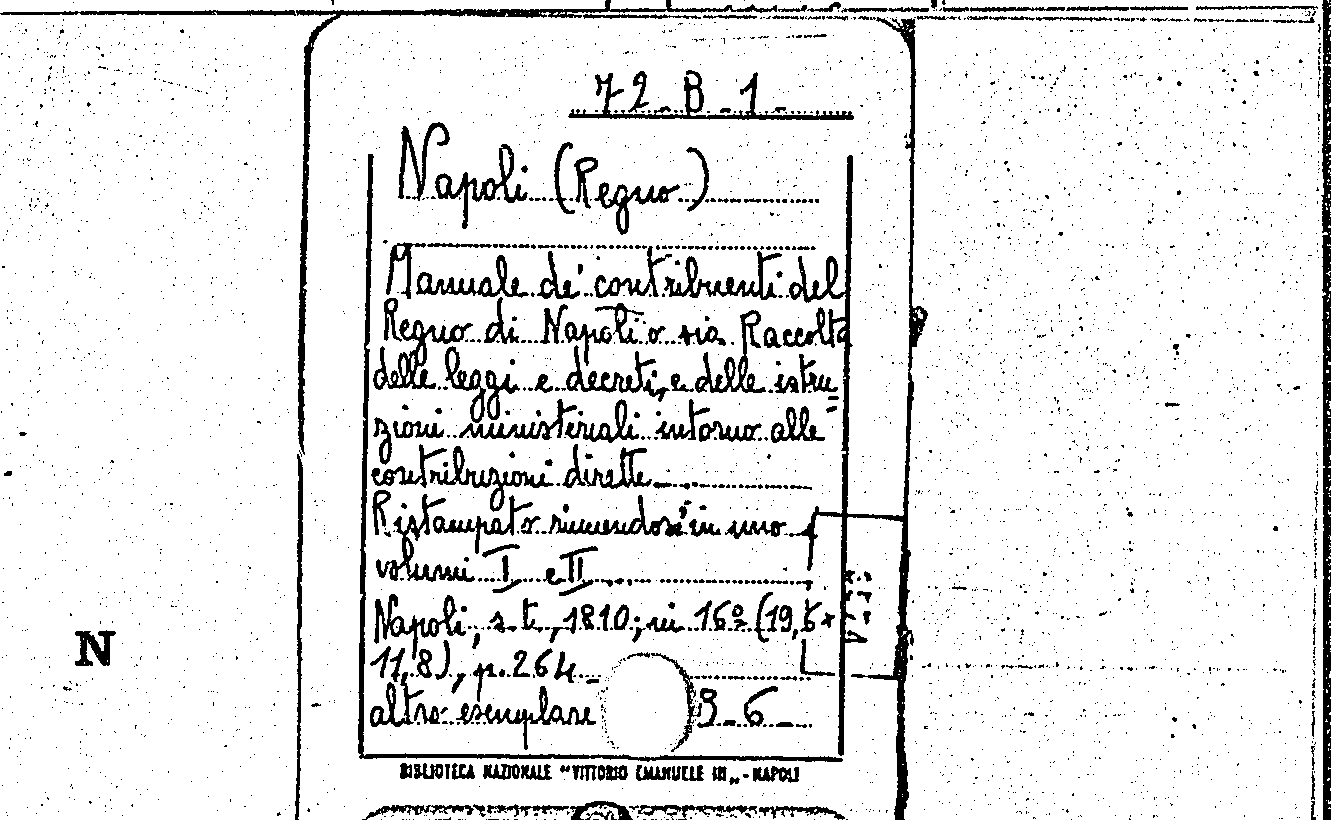 72-B-1-
Napoli (Regno)
Manuale de' contribuenti del
Regno di Napoli o sia Raccolta
delle leggi e decreti, e delle istru=
zioni ministeriali intorno alle
contribuzioni dirette
Ristampato riunendosi in uno i
volumi I e II
Napoli, s.t., 1810; in 16º (19,5x
11,8), p.264-
altro esemplare B-6-
N
BIBLIOTECA NAZIONALE "VITTORIO EMANUELE III„-NAPOLI